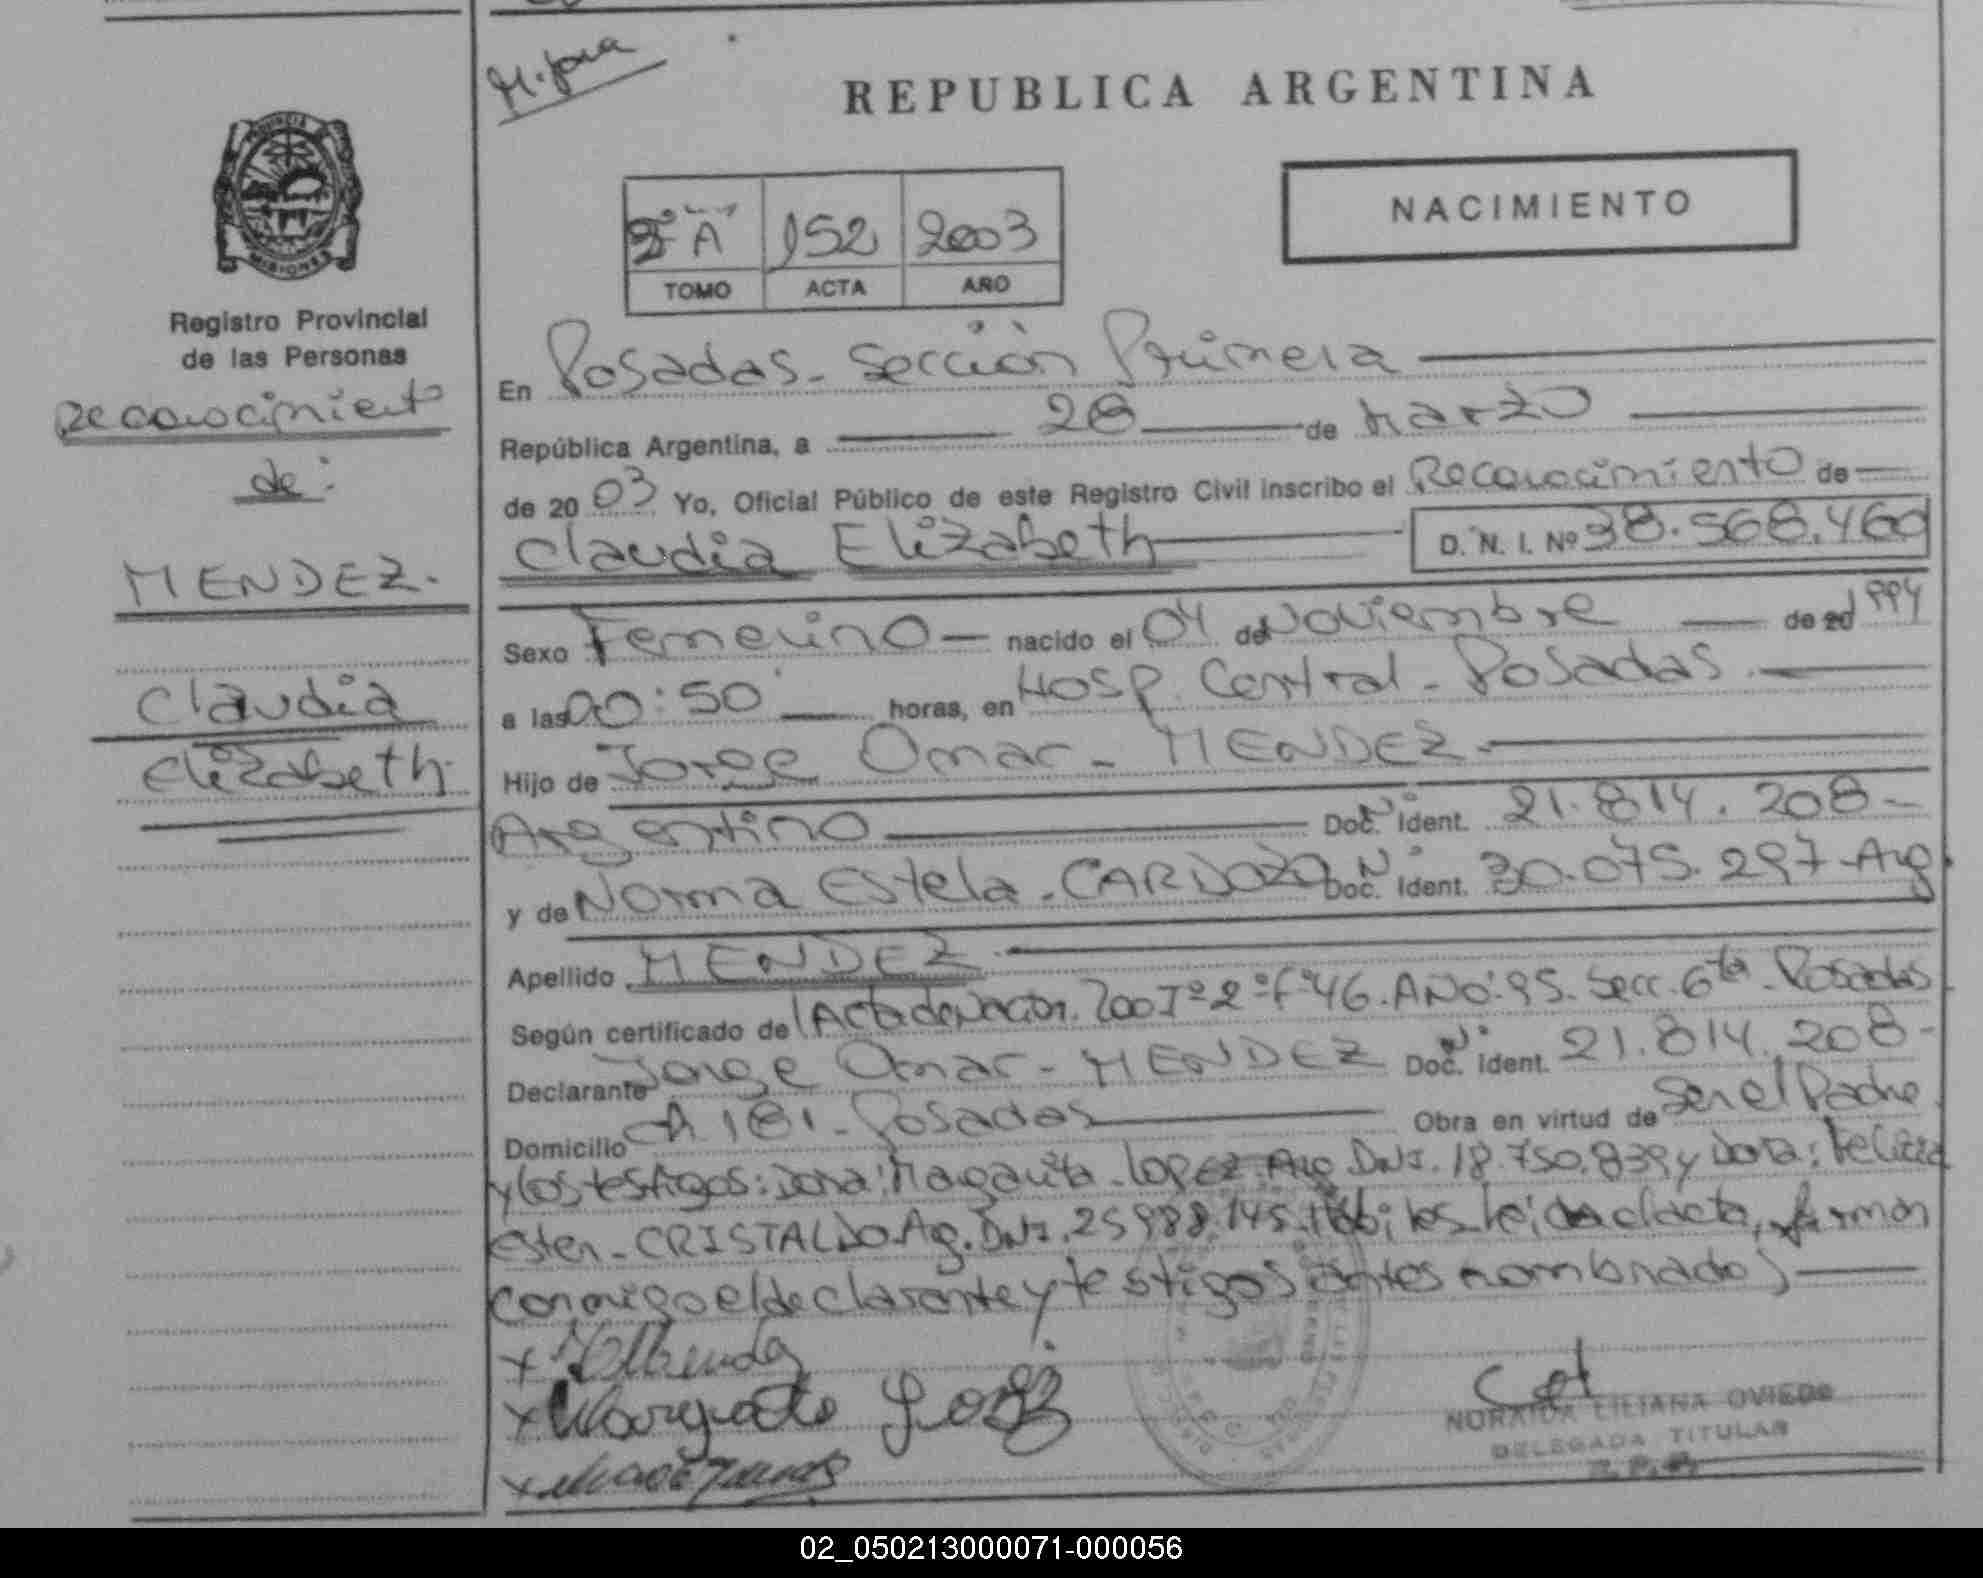 REPUBLICA ARGENTINA
PROVINCIA DE
MISIONES
2º "A" 152 2003
TOMO ACTA AÑO
NACIMIENTO
Registro Provincial
de las Personas
Reconocimiento
de:
MENDEZ.
Claudia
Elizabeth
En Posadas - Sección Primera
República Argentina, a 28 de Marzo
de 2003 Yo, Oficial Público de este Registro Civil inscribo el Reconocimiento de
Claudia Elizabeth D. N. I. Nº 38.568.460
Sexo Femenino nacido el 04 de Noviembre de 1994
a las 00:50 horas, en Hosp. Central - Posadas
Hijo de Jorge Omar - MENDEZ
Argentino Doc. Nº Ident. 21.814.208-
y de Norma Estela - CARDOZO Doc. Nº Ident. 30.075.297-Arg.
Apellido MENDEZ
Según certificado de Acta de Nacim. 200 Tº 2º Fº 46. AÑO: 95. Secc. 6ta - Posadas
Declarante Jorge Omar - MENDEZ Doc. Nº Ident. 21.814.208-
Domicilio Ch 181 - Posadas Obra en virtud de Ser el Padre
y los testigos: Doña: Margarita - LOPEZ. Arg. DNI. 18.750.839 y Doña: Feliza
Ester - CRISTALDO Arg. DNI. 25988.145. leida el acta, firman
conmigo el declarante y testigos antes nombrados
Margarita Lopez
NORAIDA LILIANA OVIEDO
DELEGADA TITULAR
R. P. P.
02_050213000071-000056